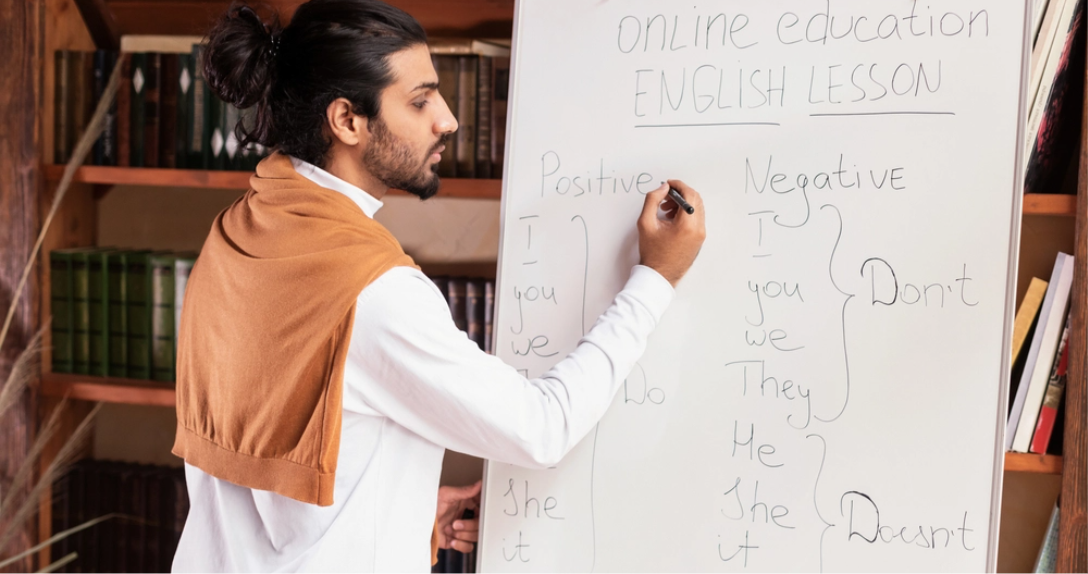 online education
ENGLISH LESSON
Positive
I
you
we
Do
She
it
Negative
I
you
we
They
Don't
He
She
it
Doesn't